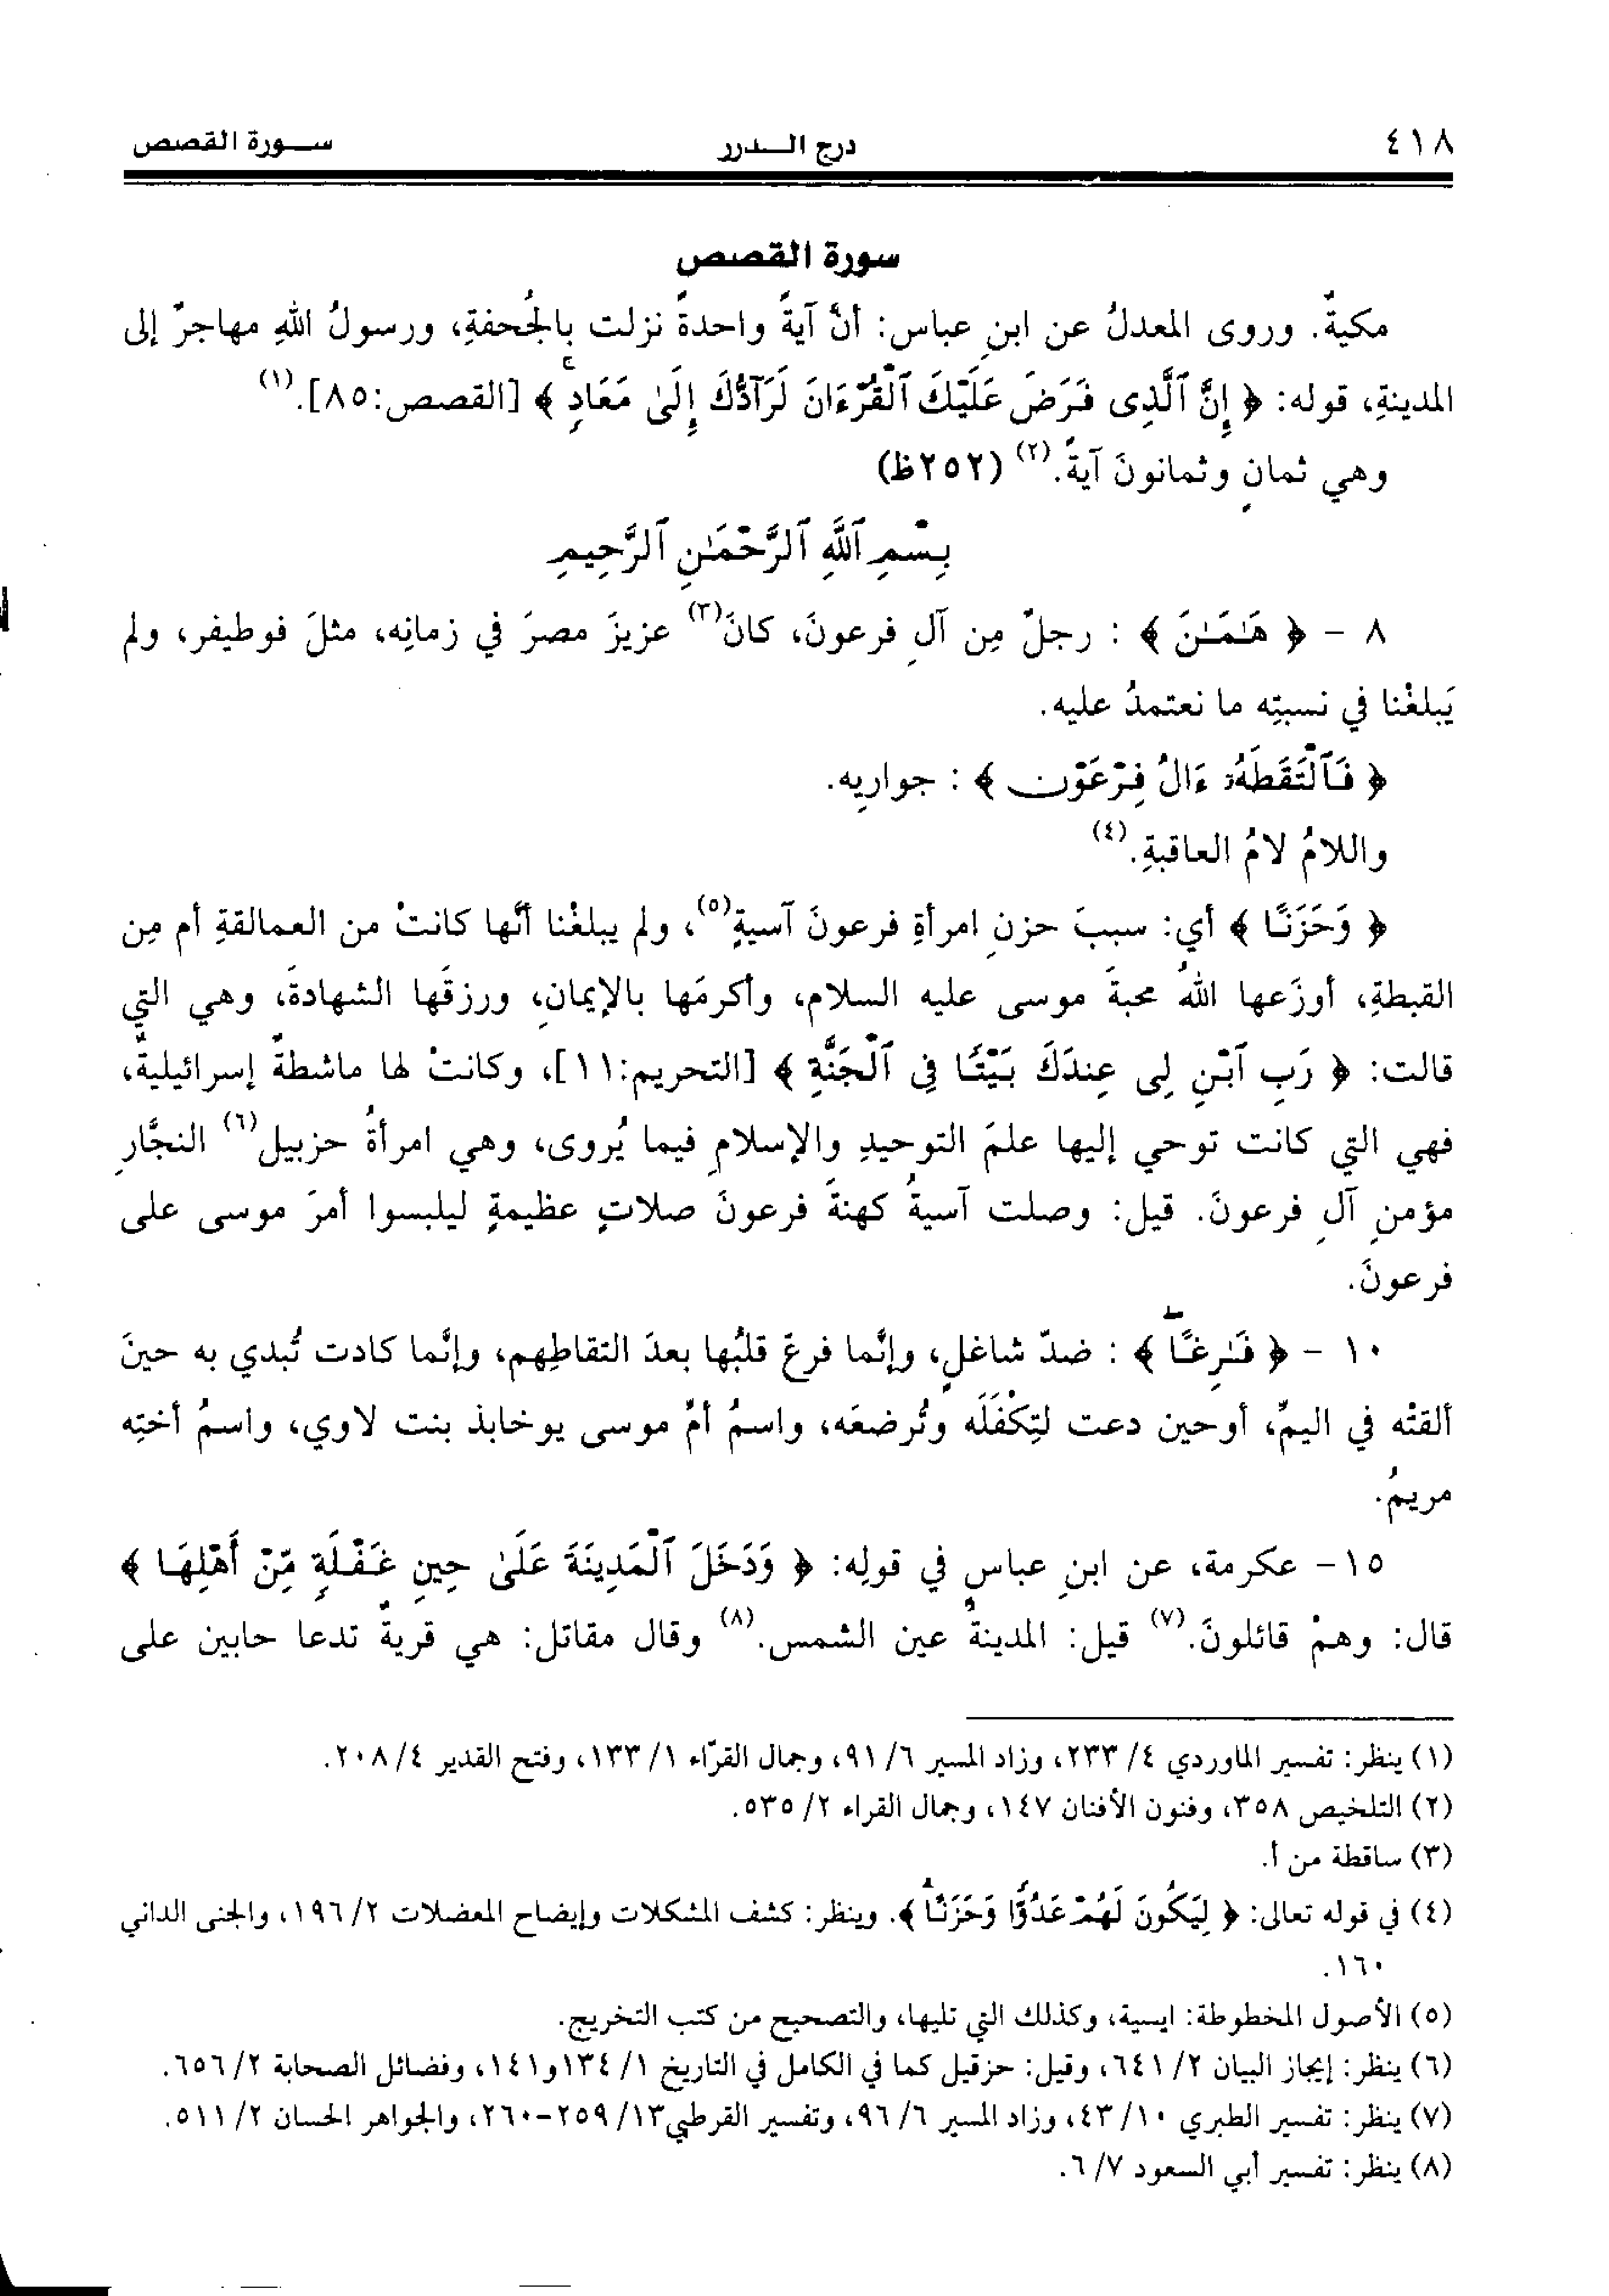 ٤١٨ درج الـــدرر ســـورة القصص
سورة القصص
مكيةٌ. وروى المعدلُ عن ابنِ عباس: أنَّ آيةً واحدةً نزلت بالجُحفةِ، ورسولُ اللهِ مهاجرٌ إلى
المدينةِ، قوله: ﴿ إِنَّ ٱلَّذِى فَرَضَ عَلَيْكَ ٱلْقُرْءَانَ لَرَآدُّكَ إِلَىٰ مَعَادٍۚ ﴾ [القصص:٨٥].(١)
وهي ثمانٍ وثمانونَ آيةً.(٢) (٢٥٢ظ)
بِسْمِ ٱللَّهِ ٱلرَّحْمَـٰنِ ٱلرَّحِيمِ
٨ - ﴿ هَـٰمَـٰنَ ﴾ : رجلٌ مِن آلِ فرعونَ، كانَ(٣) عزيزَ مصرَ في زمانِه، مثلَ فوطيفر، ولم
يَبلغْنا في نسبتِه ما نعتمدُ عليه.
﴿ فَٱلْتَقَطَهُۥٓ ءَالُ فِرْعَوْنَ ﴾ : جواريِه.
واللامُ لامُ العاقبةِ.(٤)
﴿ وَحَزَنًا ﴾ أي: سببَ حزنِ امرأةِ فرعونَ آسيةٍ(٥)، ولم يبلغْنا أنَّها كانتْ من العمالقةِ أم مِن
القبطةِ، أوزَعها اللهُ محبةَ موسى عليه السلام، وأكرمَها بالإيمانِ، ورزقَها الشهادةَ، وهي التي
قالت: ﴿ رَبِّ ٱبْنِ لِى عِندَكَ بَيْتًا فِى ٱلْجَنَّةِ ﴾ [التحريم:١١]، وكانتْ لها ماشطةٌ إسرائيليةٌ،
فهي التي كانت توحي إليها علمَ التوحيدِ والإسلامِ فيما يُروى، وهي امرأةُ حزبيل(٦) النجَّارِ
مؤمنِ آلِ فرعونَ. قيل: وصلت آسيةُ كهنةَ فرعونَ صلاتٍ عظيمةٍ ليلبسوا أمرَ موسى على
فرعونَ.
١٠ - ﴿ فَـٰرِغًاۖ ﴾ : ضدّ شاغلٍ، وإنَّما فرغَ قلبُها بعدَ التقاطِهم، وإنَّما كادت تُبدي به حينَ
ألقتْه في اليمِّ، أوحين دعت لِتكْفَلَه وتُرضعَه، واسمُ أمِّ موسى يوخابذ بنت لاوي، واسمُ أختِه
مريمُ.
١٥- عكرمة، عن ابنِ عباسٍ في قولِه: ﴿ وَدَخَلَ ٱلْمَدِينَةَ عَلَىٰ حِينِ غَفْلَةٍ مِّنْ أَهْلِهَا ﴾
قال: وهمْ قائلونَ.(٧) قيل: المدينةُ عين الشمس.(٨) وقال مقاتل: هي قريةٌ تدعا حابين على
(١) ينظر: تفسير الماوردي ٤/ ٢٣٣، وزاد المسير ٦/ ٩١، وجمال القرّاء ١/ ١٣٣، وفتح القدير ٤/ ٢٠٨.
(٢) التلخيص ٣٥٨، وفنون الأفنان ١٤٧، وجمال القراء ٢/ ٥٣٥.
(٣) ساقطة من أ.
(٤) في قوله تعالى: ﴿ لِيَكُونَ لَهُمْ عَدُوًّا وَحَزَنًا ﴾. وينظر: كشف المشكلات وإيضاح المعضلات ٢/ ١٩٦، والجنى الداني
١٦٠.
(٥) الأصول المخطوطة: ايسية، وكذلك التي تليها، والتصحيح من كتب التخريج.
(٦) ينظر: إيجاز البيان ٢/ ٦٤١، وقيل: حزقيل كما في الكامل في التاريخ ١/ ١٣٤و١٤١، وفضائل الصحابة ٢/ ٦٥٦.
(٧) ينظر: تفسير الطبري ١٠/ ٤٣، وزاد المسير ٦/ ٩٦، وتفسير القرطبي١٣/ ٢٥٩-٢٦٠، والجواهر الحسان ٢/ ٥١١.
(٨) ينظر: تفسير أبي السعود ٧/ ٦.